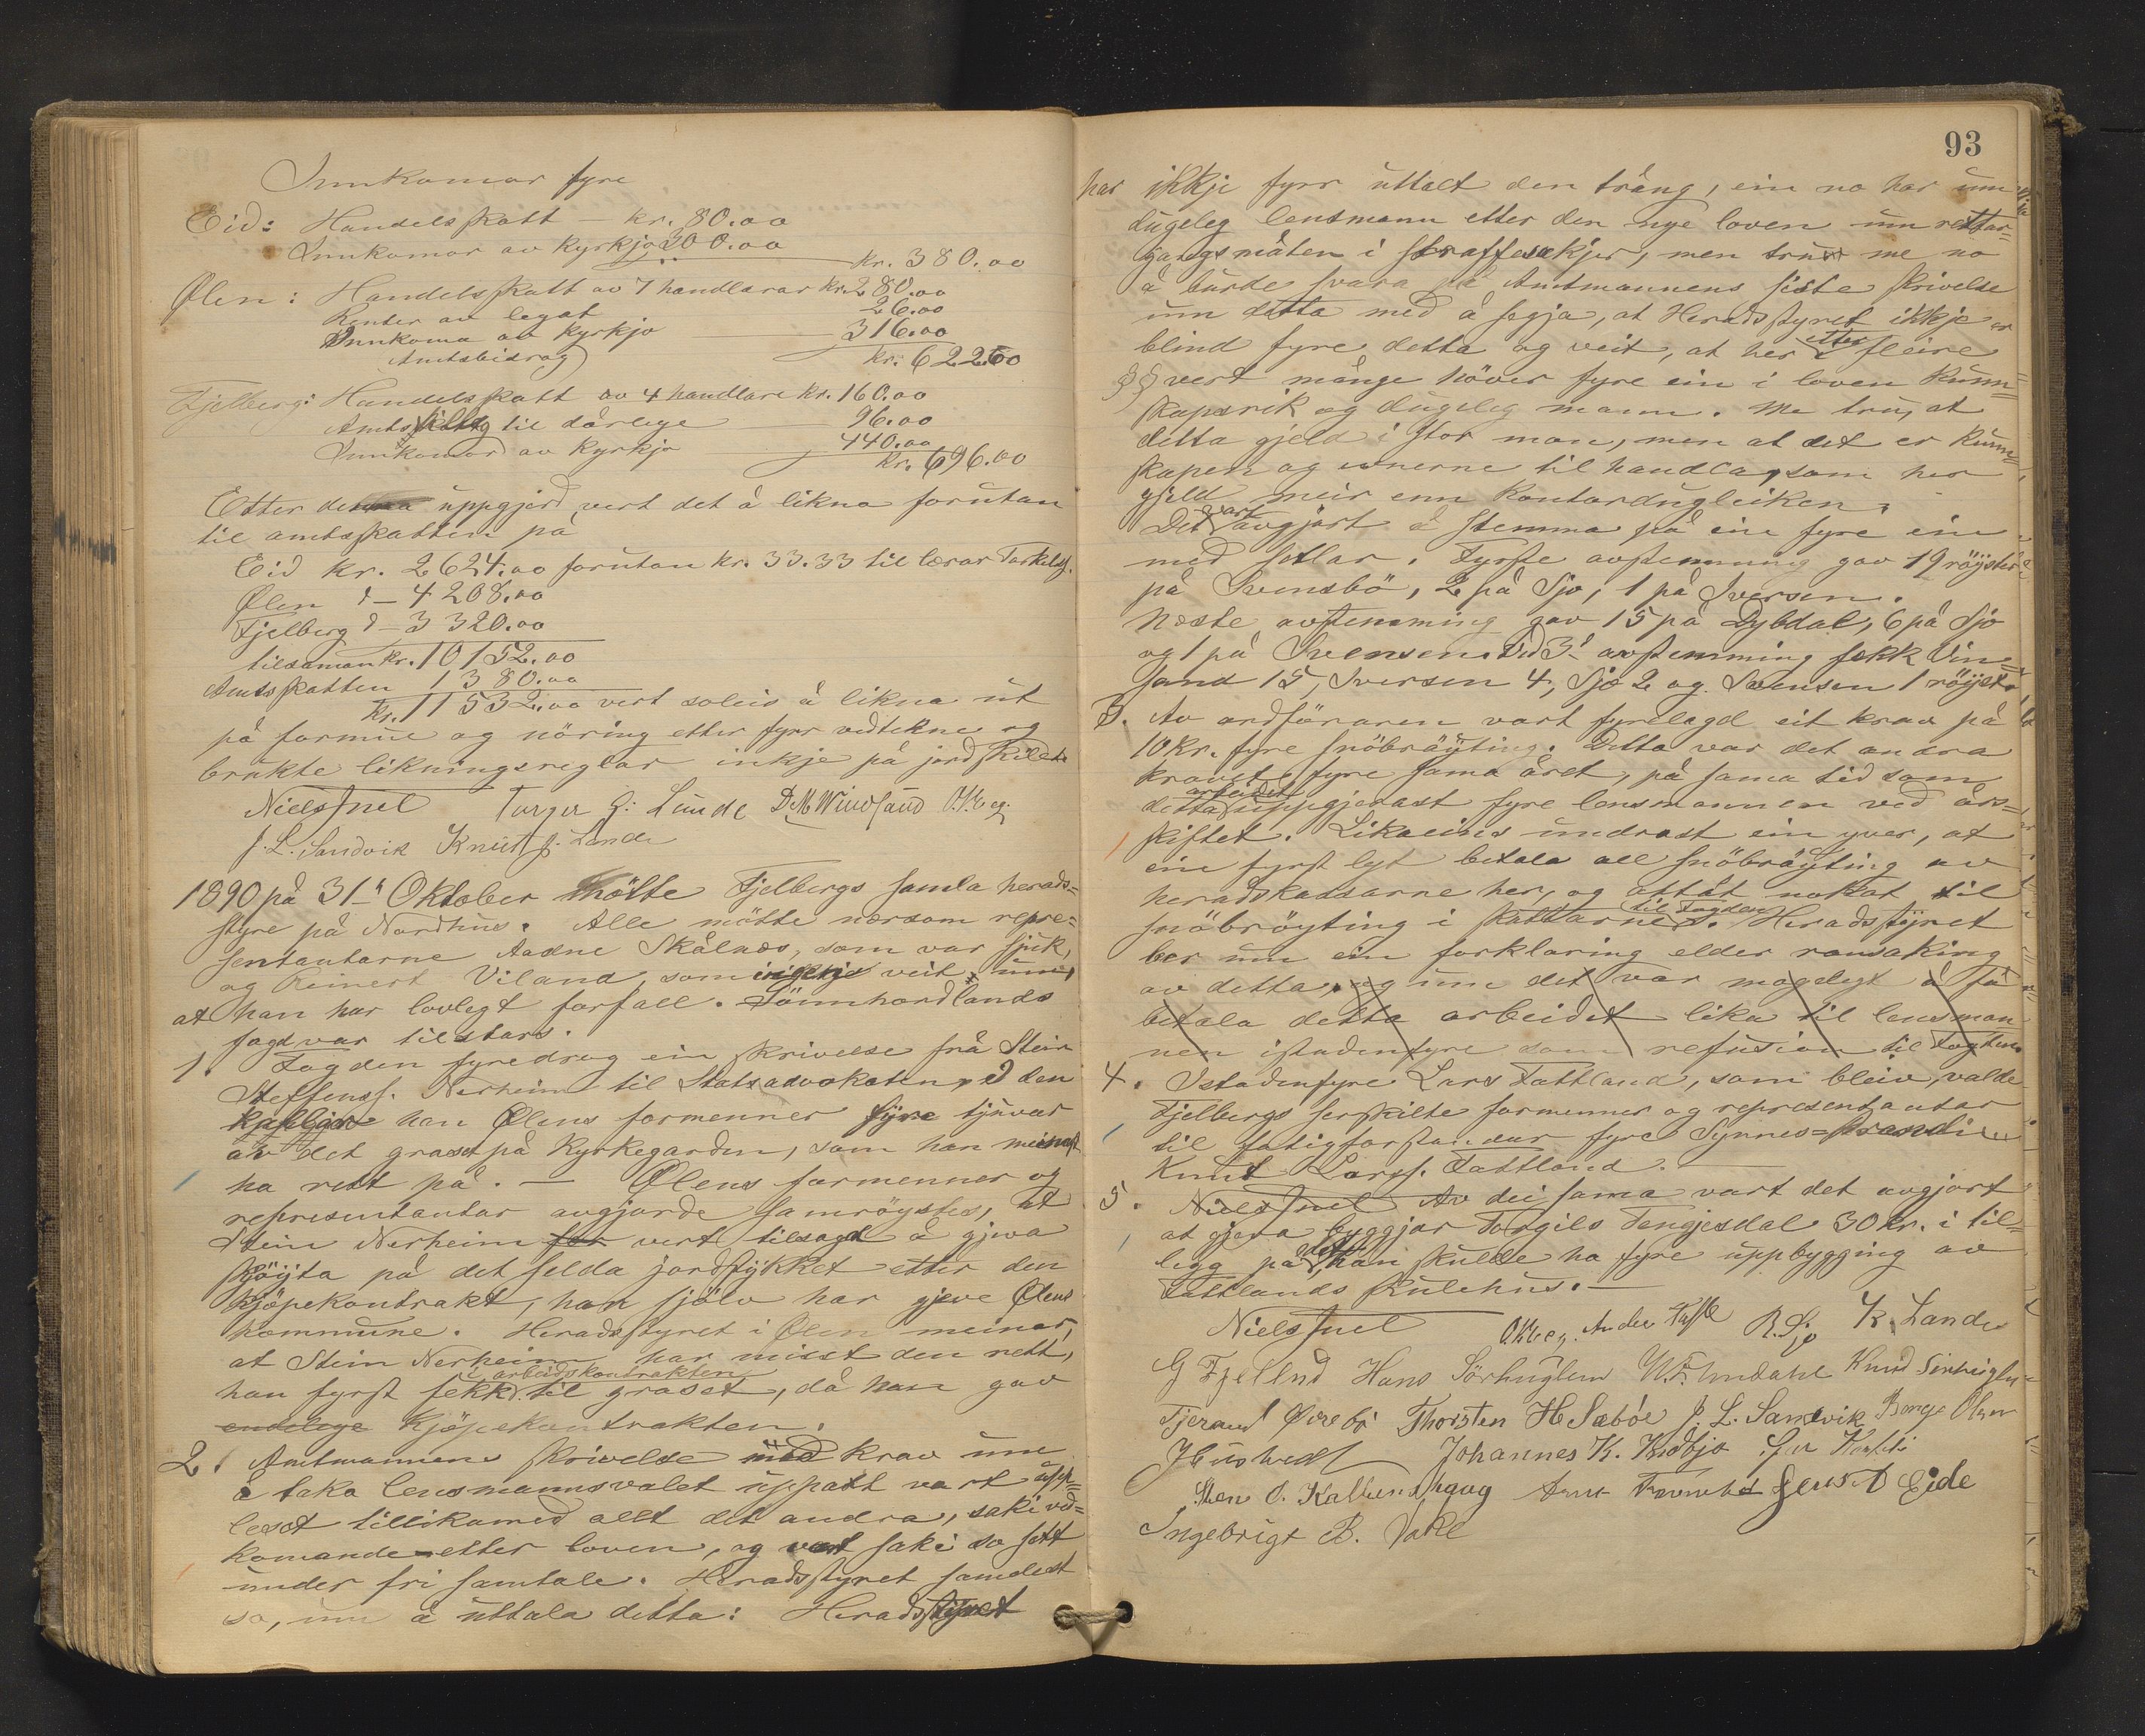 Innkomor fyre
Eid: Handelsskatt — kr. 80.00
Innkomor av kyrkjo 300.00
kr. 380.00
Ølen: Handelsskatt av 7 handlarar kr. 280.00
Renter av legat 26.00
Innkoma av kyrkjo 316.00
Amtsbidrag kr. 622.00
Fjelberg: Handelsskatt av 4 handlare kr. 160.00
til dårlege 96.00
Innkomor av kyrkjo 440.00
kr. 696.00
Etter denna uppgjerd vert det å likna forutan
til amtsskatten på
Eid kr. 2624.00 forutan kr. 33.33 til lærar Torkelss.
Ølen d– 4208.00
Fjelberg d– 3320.00
tilsaman kr. 10152.00
Amtsskatten 1380.00
kr. 11532.00 vert soleis å likna ut
på formue og näring etter fyrr vedtekne og
brukte likningsreglar inkje på jordskilde
Niels Juel Torger G. Lunde D. M. Windsand O. Kleg.
J. L. Sandvik Knut J. Lande
1890 på 31te Oktober mötte Fjelbergs samla herads=
styre på Nordhus. Alle mötte nærsom repre=
sentantarne Aadne Skålnæs, som var sjuk,
og Reinert Viland, som ingen veit um,
at han har lovlegt forfall. Sönnhordlands
fogd var tilstars.
1. Fogden fyredrog ein skrivelse frå Stein
Steffenss. Nerheim til Statsadvokaten, i den
han Ølens formenner fyre tjuvar
av det graset på kyrkegarden, som han meiner
ha rett på. — Ølens formenner og
representantar avgjorde samröystes, at
Stein Nerheim for vert tilsagt å gjeva
sköyta på det selda jordstykket etter den
kjöpekontrakt, han sjölv har gjeve Ølens
kommune. Heradsstyret i Ølen meiner,
at Stein Nerheim har misst den rett,
i arbeidskontrakten
han fyrst fekk til graset, då han gav
endelege kjöpekontrakten.
2. Amtmannens skrivelse med krav um
å taka lensmannsvalet uppatt vart upp=
leset tillikamed allt det andra, saki ved=
komande etter loven, og vart saki so sett
under fri samtale. Heradsstyret samdest
so, um å uttala detta: Heradsstyret
93
har ikkje fyrr uttalt den trång, ein no har um
dugeleg lensmann etter den nye loven um rettar=
gangsmåten i straffesakjer, men trur me no
å burde svara på Amtmannens siste skrivelse
um detta med å segja, at Heradsstyret ikkje er
blind fyre detta og veit, at her etter fleire
§§ vert mange höver fyre ein i loven kunn=
skapsrik og dugeleg mann. Me tru, at
detta gjeld i stor mon, men at det er kunn=
skapen og evnerne til handlag, som her
gjeld meir enn kontordugleiken.
Det vart avgjört å stemma på ein fyre ein
med setlar. Fyrste avstemning gav 19 röyster
på Svensbö, 2 på Sjo, 1 på Iversen.
Næste avstemming gav 15 på Dybdal, 6 på Sjo
og 1 på Svensen. Ved 3dje avstemming fekk Vin=
sand 15, Iversen 4, Sjo 2 og Svensen 1 röyst.
3. Av ordföraren vart fyrelagd eit krav på
10 kr. fyre snöbröyting. Detta var det andra
kravet fyre sama året, på sama tid som
arbeidet
detta uppgjerast fyre lensmannen ved års=
skiftet. Likaeins undrast ein yver, at
ein fyrst lyt betala all snöbröyting av
heradskassarne her, og attåt nokot til
til Fogden
snöbröyting i skattarne. Heradsstyret
ber um ein forklaring elder ransaking
av detta, og um det var mogelegt å få
betala detta arbeidet lika til lensman
nen istadenfyre som refusion til Fogden.
4. Istadenfyre Lars Tattland, som bleiv, valde
Fjelbergs serskilte formenner og representantar
til fatigforstandar fyre Synnes=strandi
Knut Larss. Tattland.
5. Niels Juel Av dei sama vart det avgjort
at gjeva byggjar Torgils Tengjesdal 30 kr. i til=
legg på det, han skulde ha fyre uppbygging av
Tattlands skulehus.
Niels Juel O. Kleg. R. Sjo K. Lande
G Fjellnd Hans Sörhuglen Knud
Tjeraand Øvrebö Thorsten H Sæböe J. L. Sandvik Børge Olsen
J Hustvedt Johannes K.
Sten O. Kallund Eide
Ingebrigt B. Vakl